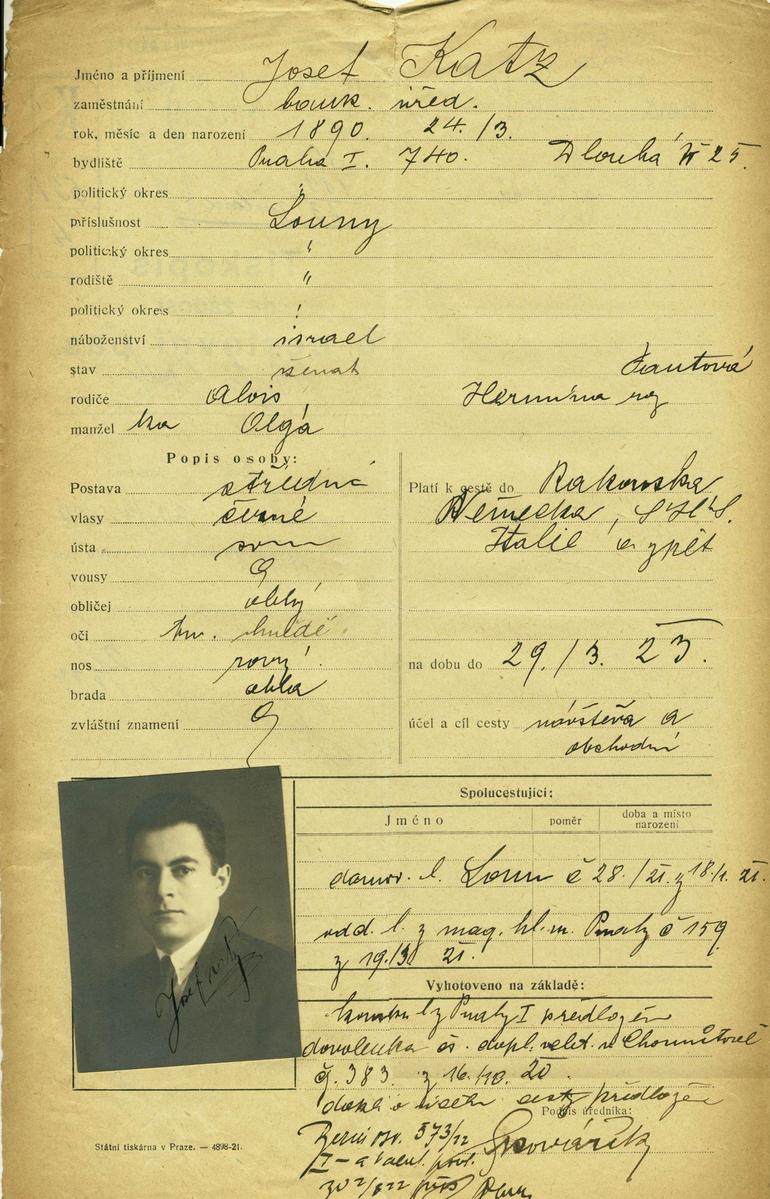 Jméno a příjmení Josef Katz
zaměstnání bank. úřed.
rok, měsíc a den narození 1890. 24./3.
bydliště Praha I. 740. Dlouhá 25.
politický okres "
příslušnost Louny
politický okres "
rodiště "
politický okres "
náboženství israel
stav ženat
rodiče Alois Hermína roz Fantová
manžel ka Olga
Popis osoby:
Postava střední
vlasy černé
ústa soum
vousy
obličej oblý
oči tm. hnědé.
nos rovný
brada oblá
zvláštní znamení
Platí k cestě do Rakouska
Německa, S.H.S.
Italie a zpět
na dobu do 29./3. 23.
účel a cíl cesty návštěva a
obchodní
Spolucestující:
Jméno
poměr
doba a místo narození
domov. l. Loun č 28./21. z 18./1. 21.
odd. l. z mag. hl. m. Prahy č 159
z 19./3 21.
Vyhotoveno na základě:
Prahy I předložen
dovolenka čs. dopl. velit. v Chomutově
č. 383. z 16./10. 20.
dokl o účelu cesty předložen
Podpis úředníka:
Kovářík
573/22
Josef Katz
Státní tiskárna v Praze. — 4898-21.